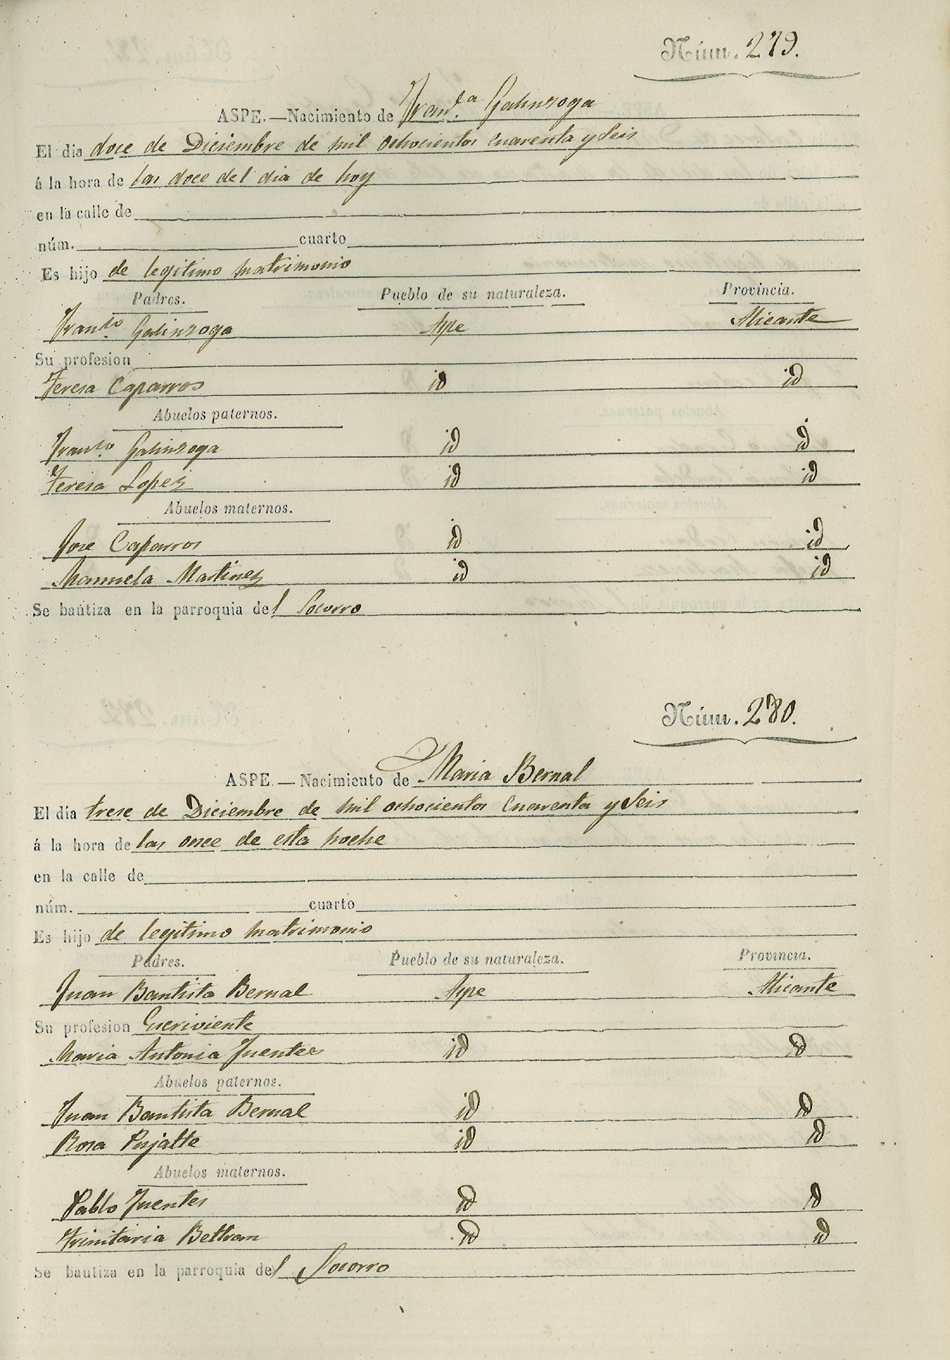 Núm. 279.
ASPE.—Nacimiento de Fran.ca Galinsoga
El día doce de Diciembre de mil ochocientos cuarenta y seis
á la hora de las doce del dia de hoy
en la calle de
núm. cuarto
Es hijo de legitimo matrimonio
Padres. Pueblo de su naturaleza. Provincia.
Franco Galinsoga Aspe Alicante
Su profesion
Teresa Caparros id id
Abuelos paternos.
Franco Galinsoga id id
Teresa Lopez id id
Abuelos maternos.
Jose Caparros id id
Manuela Martinez id id
Se bautiza en la parroquia del Socorro
Núm. 280.
ASPE.—Nacimiento de Maria Bernal
El día trese de Diciembre de mil ochocientos cuarenta y seis
á la hora de las once de esta noche
en la calle de
núm. cuarto
Es hijo de legitimo matrimonio
Padres. Pueblo de su naturaleza. Provincia.
Juan Bautista Bernal Aspe Alicante
Su profesion Escriviente
Maria Antonia Fuentes id id
Abuelos paternos.
Juan Bautista Bernal id id
Rosa Pujalte id id
Abuelos maternos.
Pablo Fuentes id id
Trinitaria Beltran id id
Se bautiza en la parroquia del Socorro